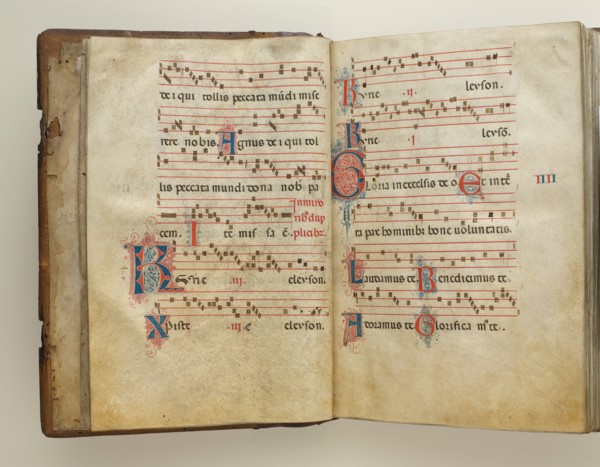 de i qui tollis peccata mūdi mise
rere nobis. Agnus de i qui tol
lis peccata mundi dona nob pa
cem. I te mis sa ē.
Kyrie .iij. eleyson.
Xpiste .iij. eleyson.
Kyrie .ij. leyson.
Kyrie .i. leysō.
Gloria in excelsis de o Et in t̄
IIII
ra pax hominibꝫ bone voluntatis.
Laudamus te. Benedicimus te.
Adoramus te Glorifica m̄ te.